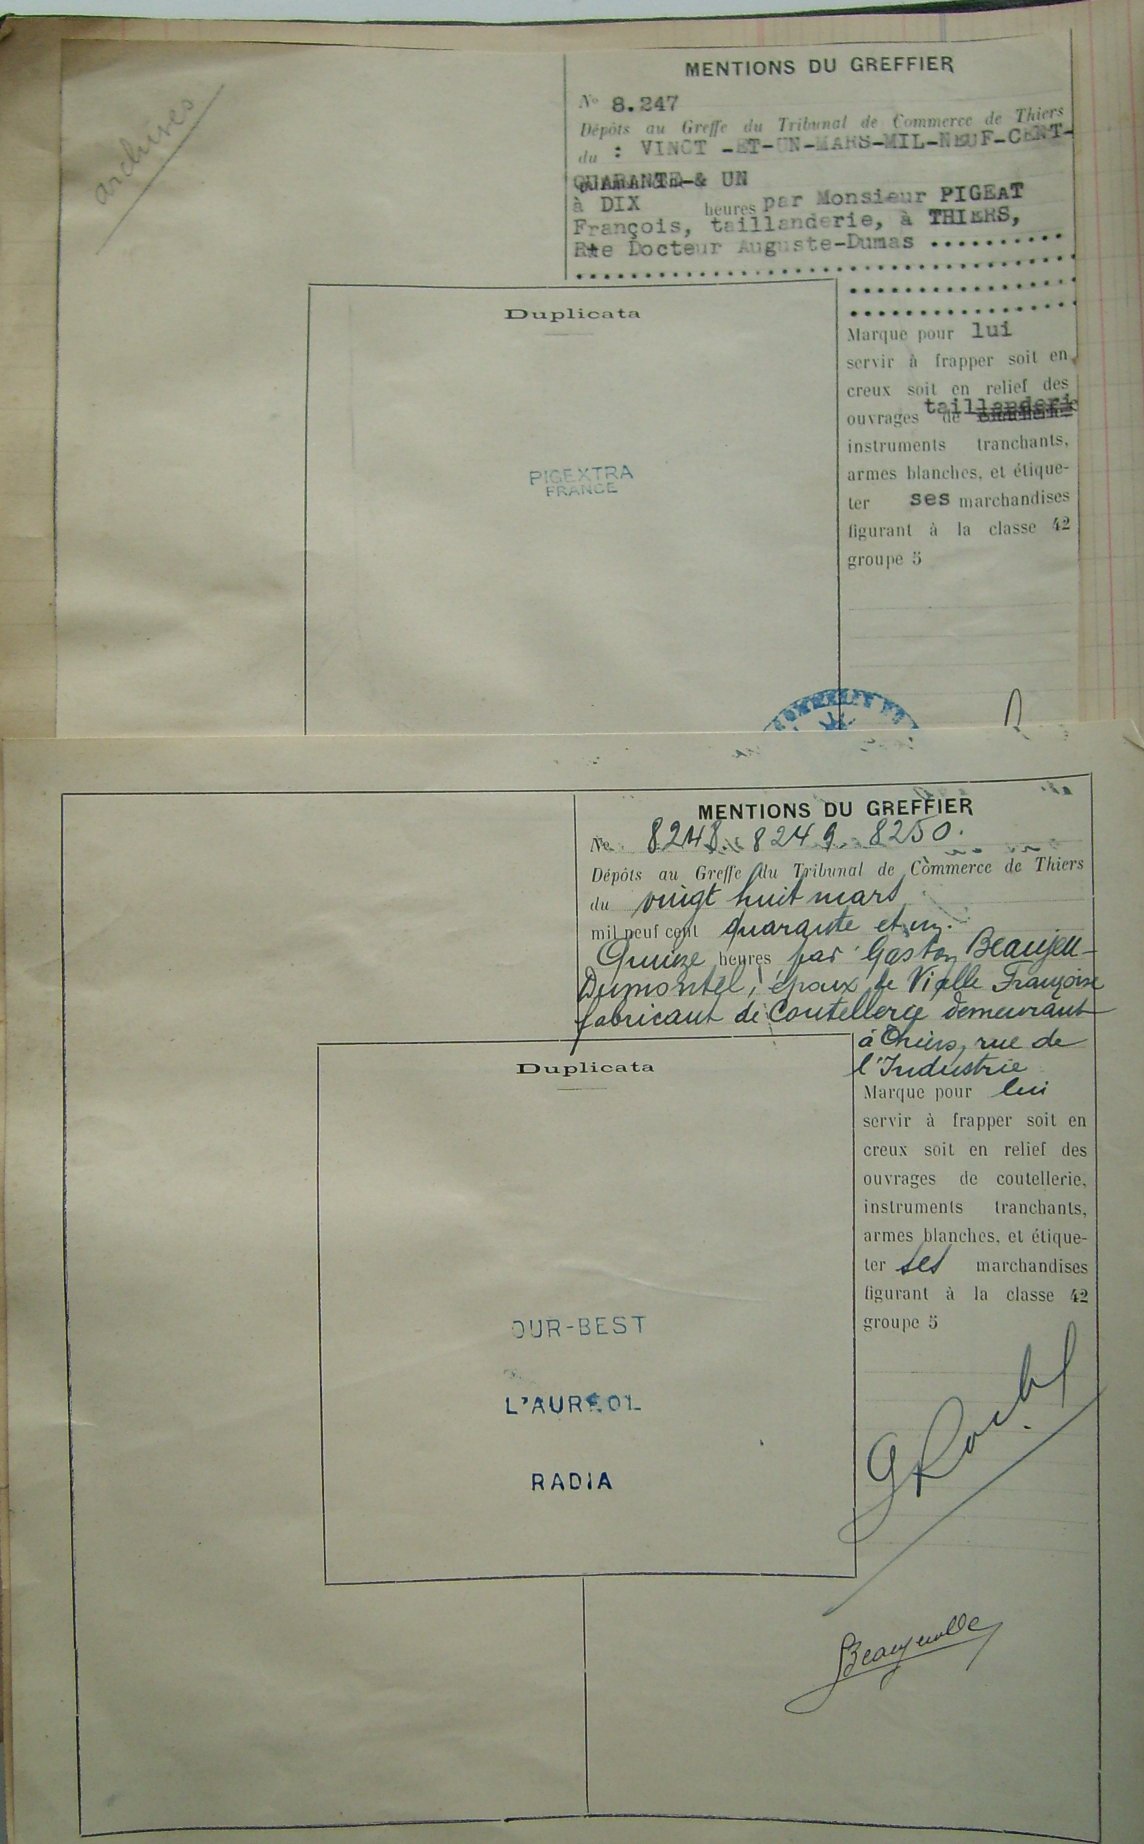 archives
MENTIONS DU GREFFIER
N° 8.247
Dépôts au Greffe du Tribunal de Commerce de Thiers
du : VINGT -ET-UN-MARS-MIL-NEUF-CENT-
QUARANTE-& UN
à DIX heures par Monsieur PIGEAT
François, taillanderie, à THIERS,
Rte Docteur Auguste-Dumas
Duplicata
PIGEXTRA
FRANCE
Marque pour lui
servir à frapper soit en
creux soit en relief des
ouvrages de taillanderie
instruments tranchants,
armes blanches, et étique-
ter ses marchandises
figurant à la classe 42
groupe 5
MENTIONS DU GREFFIER
No 8248. 8249. 8250.
Dépôts au Greffe du Tribunal de Commerce de Thiers
du vingt huit mars
mil neuf cent quarante et un.
Quinze heures par Gaston
Dumontel, époux de Vialle Françoise
fabricant de Coutellerie demeurant
à Thiers, rue de
l'Industrie
Duplicata
OUR-BEST
L'AUREOL
RADIA
Marque pour lui
servir à frapper soit en
creux soit en relief des
ouvrages de coutellerie,
instruments tranchants,
armes blanches, et étique-
ter ses marchandises
figurant à la classe 42
groupe 5